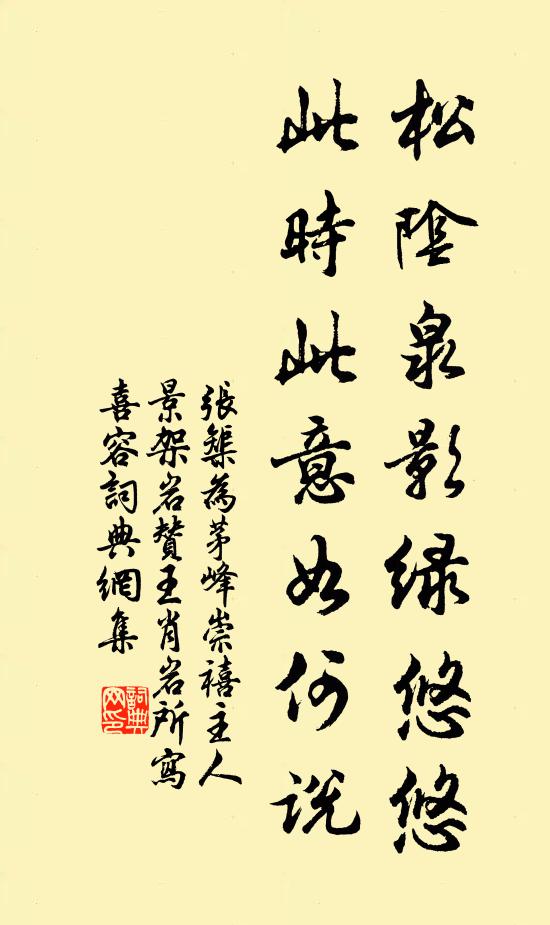 松陰泉影緑悠悠
此時此意如何說
張榘為茅峰崇禧主人
景架岩贊王肖岩所寫
喜容詞典網集
詞典網印